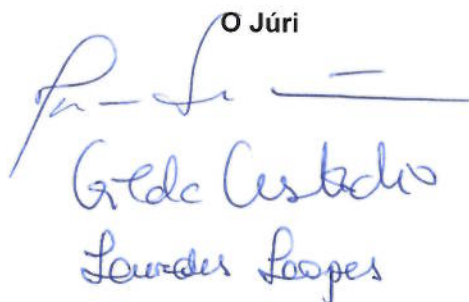 O Júri
Gilda Custódio
Lourdes Loopes